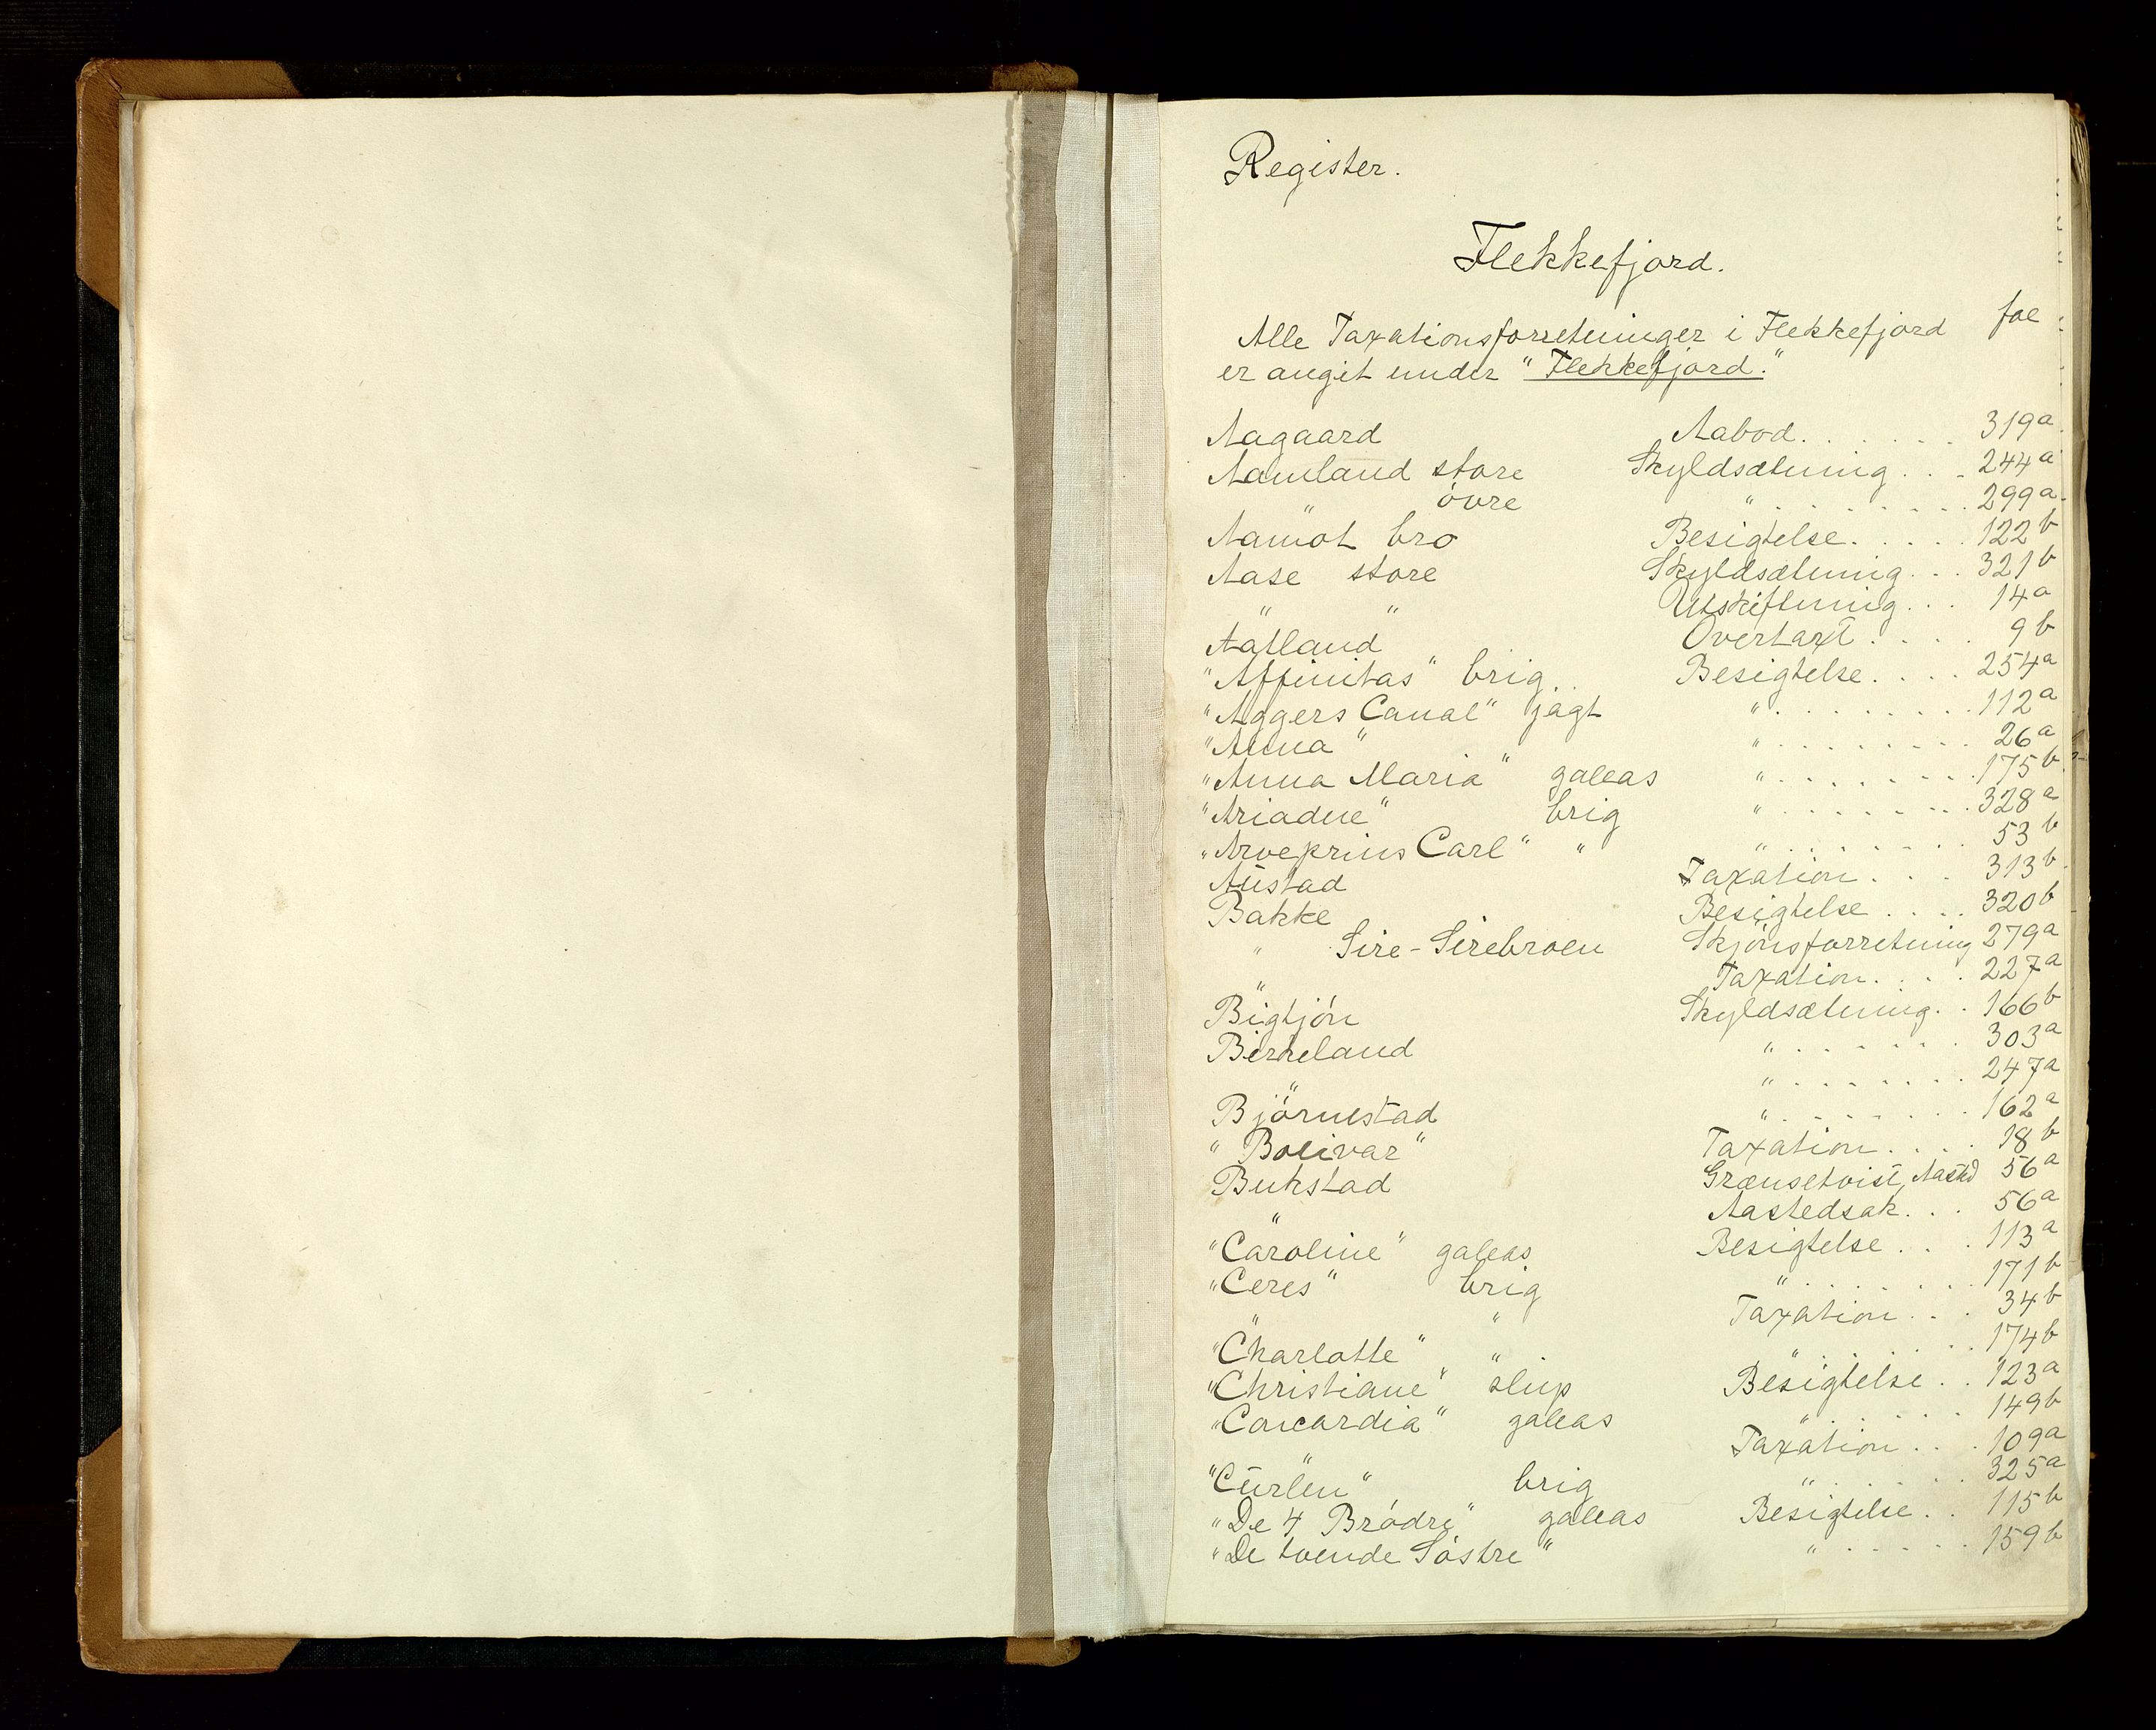 Register.
Flekkefjord.
Alle Taxationsforretninger i Flekkefjord fol
er angit under "Flekkefjord."
Aagaard Aabod. . . . . . 319a
Aamland store Skyldsætning . . . 244a
" övre " . . . . . . . . 299a
Aamot bro Besigtelse. . . . . 122b
Aase store Skyldsætning. . . 321b
" " Utskiftning. . . 14a
Aatland Overtaxt . . . . 9b
"Affinitas" brig. . Besigtelse. . . . 254a
"Aggers Canal" jagt " . . . . . . . . . 112a
"Anna" " . . . . . . . . 26a
"Anna Maria" galeas " . . . . . . . . 175b
"Ariadne" brig " . . . . . . . . 328a
"Arveprins Carl" " " . . . . . . . 53b
Austad Taxation . . . 313b
Bakke Besigtelse . . . . 320b
" Sire-Sirebroen Skjönsforretning 279a
" Taxation. . . . 227a
Bigtjön Skyldsætning. . 166b
Birkeland " . . . . . . . 303a
" " . . . . . . . 247a
Björnestad " . . . . . . . 162a
"Bolivar" Taxation. . . . 18b
Bukstad Grænsetvist, Aasted 56a
" Aastedsak. . . 56a
"Caroline" galeas Besigtelse . . . 113a
"Ceres" brig " . . . . . . . 171b
" " Taxation . . . 34b
"Charlotte" " " . . . . . . 174b
"Christiane" slup Besigtelse . . 123a
"Concordia" galeas " . . . . . 149b
" Taxation . . . 109a
"Curlen" brig " . . . . . 325a
"De 4 Brödre" galeas Besigtelse . . 115b
"De tvende Söstre" " . . . . . 159b